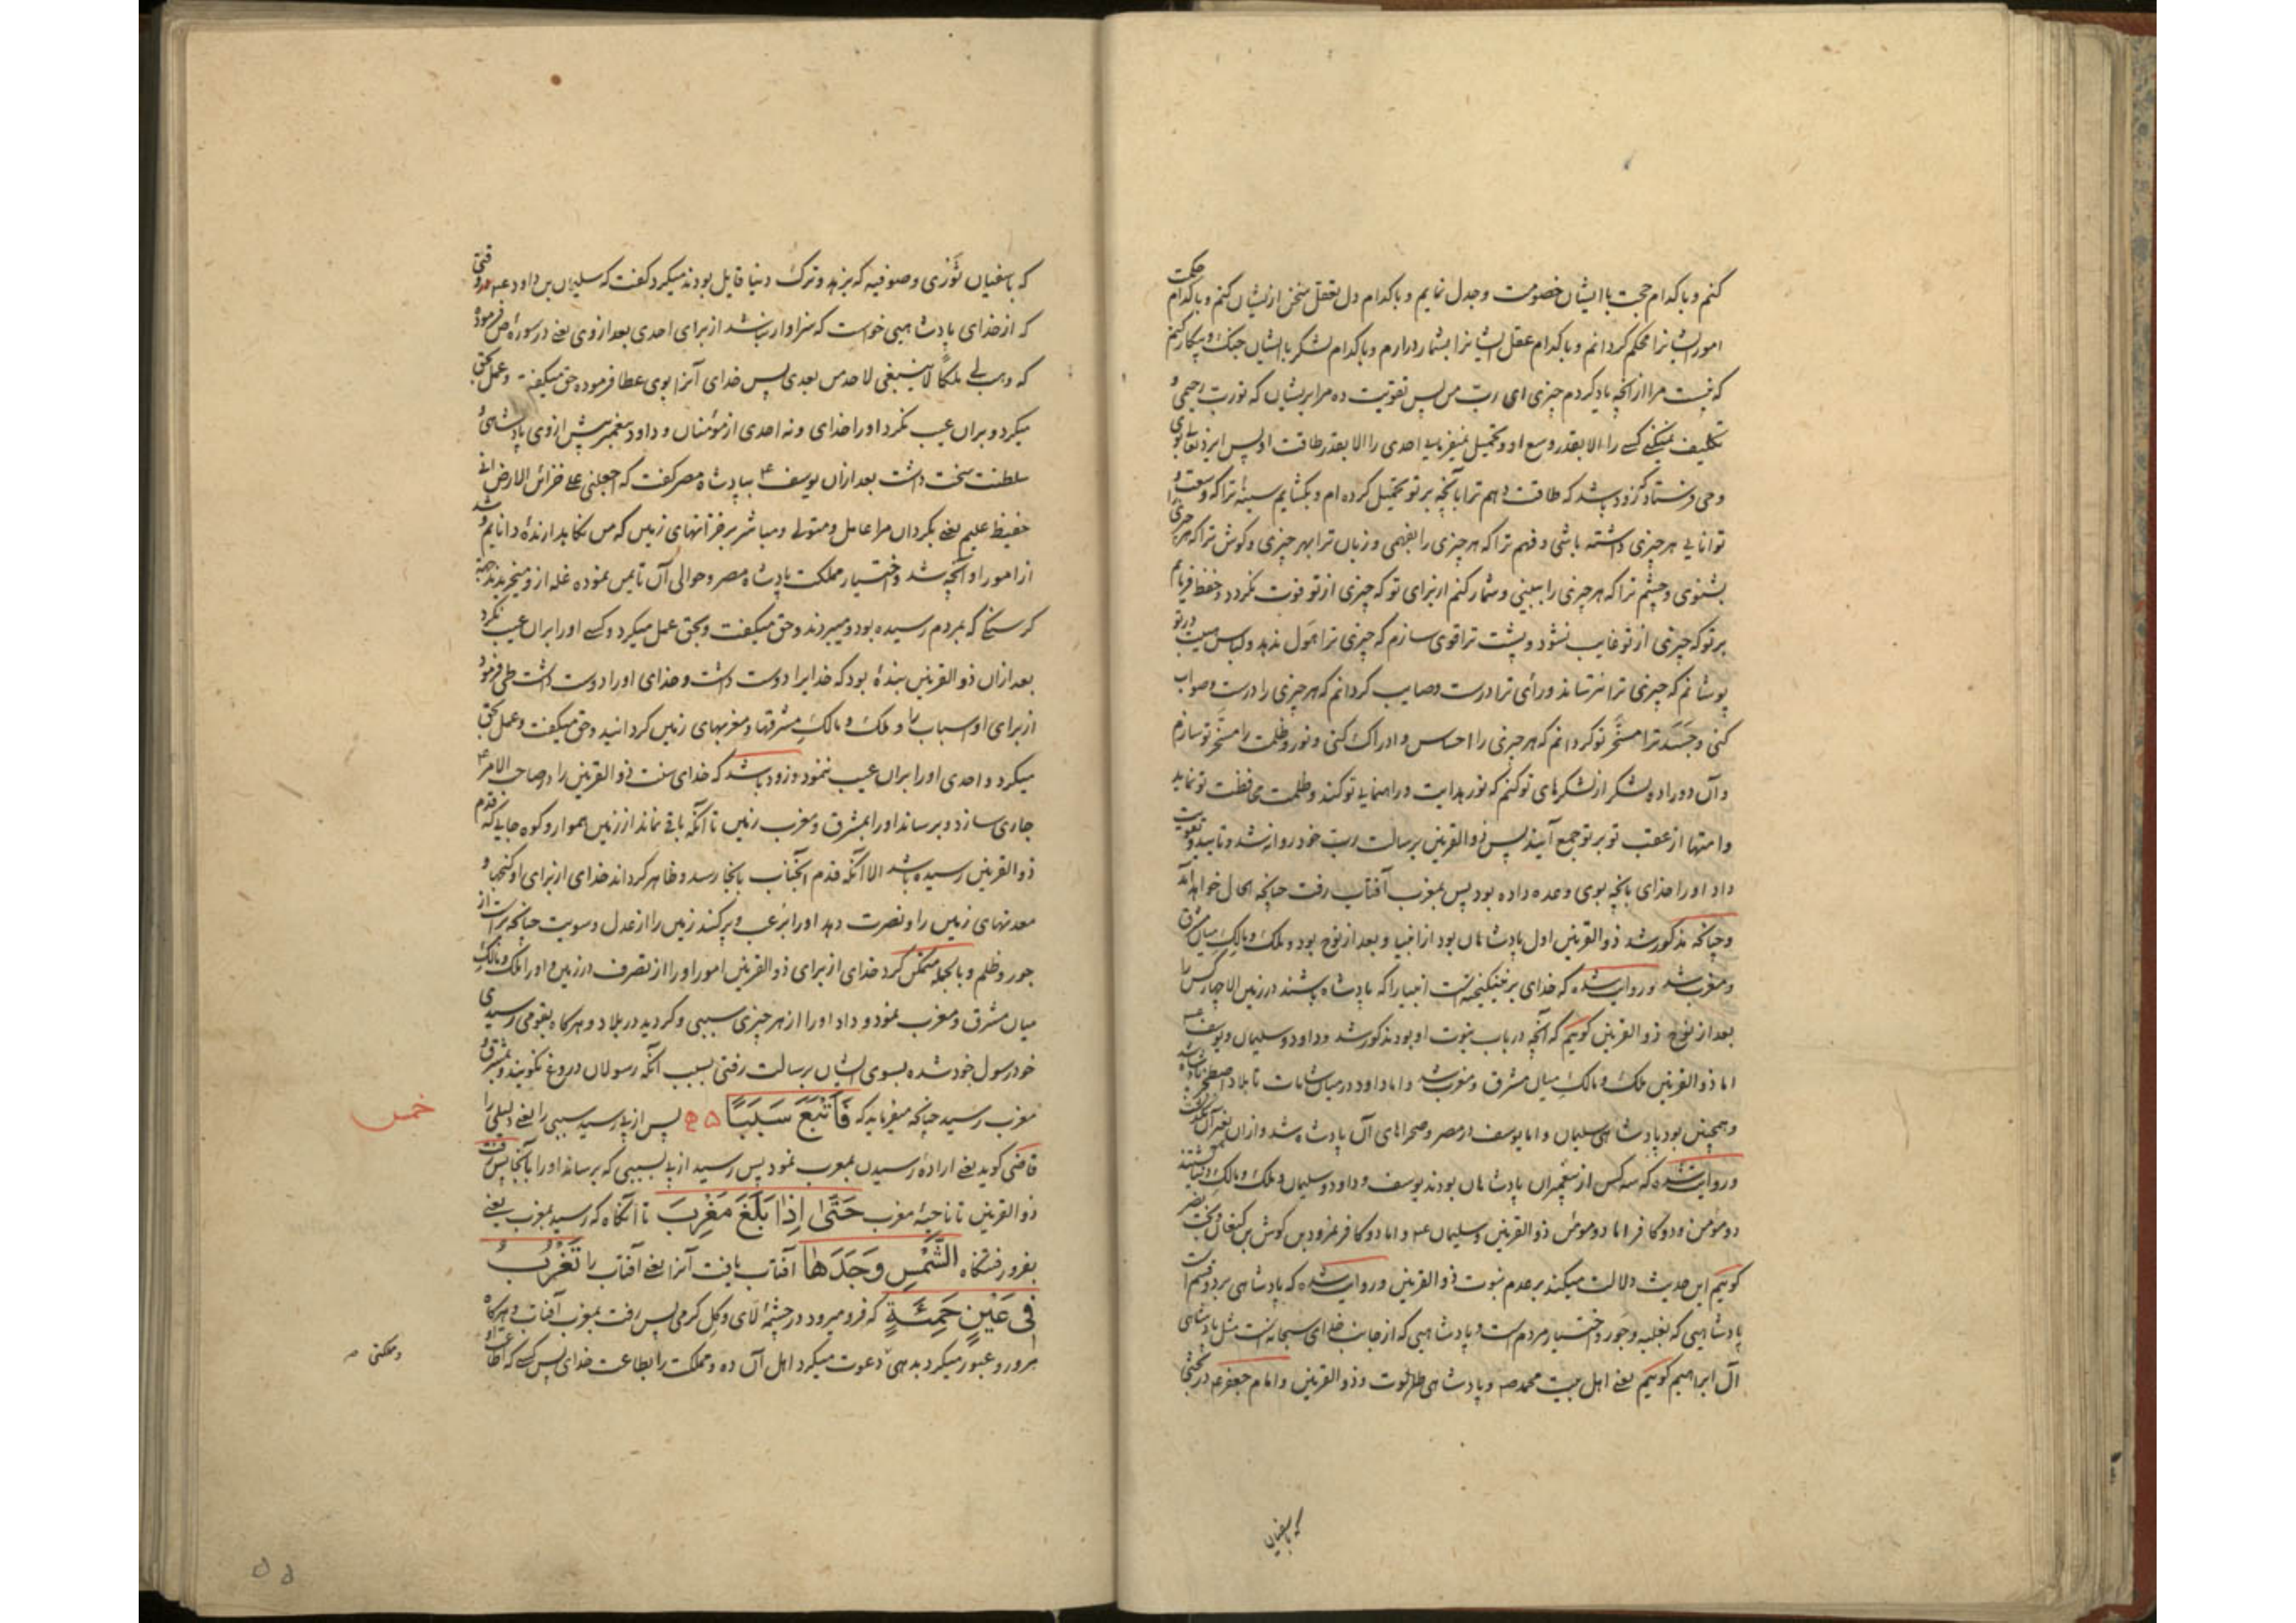 کنم و با کدام حجت با ایشان خصومت و جدل نمایم و با کدام دل تعقل سخن ازیشان کنم و با کدام حکمت
امور ایشانرا محکم گردانم و با کدام عقل ایشانرا بشمار درارم و با کدام لشگر با ایشان جنگ و پیکار کنم
که نیست مرا از آنچه یاد کردم چیزی ای رب من پس تقویت ده مرا بریشان که تو رب رحیمی و
تکلیف نمیکنی کسی را الا بقدر وسع او و تحمیل نمیفرمایی احدی را الا بقدر طاقت او پس ایزد تعالی بوی
وحی فرستاد که زود باشد که طاقت دهم ترا بآنچه بر تو تحمیل کرده ام و بگشایم سینهٔ ترا که وسعت و
توانایی هر چیزی داشته باشی و فهم ترا که هر چیزی را بفهمی و زبان ترا بهر چیزی و گوش ترا که هر چیزی
بشنوی و چشم ترا که هر چیزی را ببینی و شمار کنم از برای تو که چیزی از تو فوت نگردد و حفظ فرمایم
بر تو که چیزی از تو غایب نشود و پشت ترا قوی سازم که چیزی ترا هول ندهد و لباس هیبت در تو
پوشانم که چیزی ترا نترساند و رأی ترا درست و صایب گردانم که هر چیزی را درست و صواب
کنی و جسد ترا مسخر تو گردانم که هر چیزی را احساس و ادراک کنی و نور و ظلمت را مسخر تو سازم
و آن دو را دو لشگر از لشگرهای تو کنم که نور هدایت و راهنمایی تو کند و ظلمت محافظت تو نماید
و امتها از عقب تو بر تو جمع آیند پس ذوالقرنین برسالت رب خود روانه شد و تایید و تقویت
داد او را خدای بآنچه بوی وعده داده بود پس بمغرب آفتاب رفت چنانچه الحال خواهد آمد
و چنانکه مذکور شد ذوالقرنین اول پادشاهان بود از انبیا و بعد از نوح بود و ملک و مالک میان مشرق
و مغرب شد و روایت شده که خدای برنینگیخته است انبیا را که پادشاه باشند در زمین الا چهار کس را
بعد از نوح ذوالقرنین گوییم که آنچه در باب نبوت او بود مذکور شد و داود و سلیمان و یوسف ع
اما ذوالقرنین ملک و مالک میان مشرق و مغرب شد و اما داود در میان شامات تا بلاد اصطخر پادشاه شد
و همچنین بود پادشاهی سلیمان و اما یوسف در مصر و صحراهای آن پادشاه شد و ازان بغیر آن نگذشت
و روایت شده که سه کس از پیغمبران پادشاهان بودند یوسف و داود و سلیمان و ملک و مالک دنیا گشتند
دو مومن و دو کافر اما دو مومن ذوالقرنین و سلیمان ع و اما دو کافر نمرود بن کوش بن کنعان و بخت نصر
گوییم این حدیث دلالت میکند بر عدم نبوت ذوالقرنین و روایت شده که پادشاهی بر دو قسم است
پادشاهی که بغلبه و جور و اختیار مردم است و پادشاهی که از جانب خدای سبحانه است مثل پادشاهی
آل ابراهیم گوییم یعنی اهل بیت محمد ص و پادشاهی طالوت و ذوالقرنین و امام جعفر ع در بحثها
که با سفیان
که با سفیان ثَوْری و صوفیه که بزهد و ترک دنیا قایل بودند میکرد گفت که سلیمان بن داود ع
که از خدای پادشاهیی خواست که سزاوار نباشد از برای احدی بعد از وی یعنی در سورهٔ ص فرموده
که وهب لی ملکاً لا ینبغی لاحد من بعدی پس خدای آنرا بوی عطا فرموده حق میگفت و عمل بحق
میکرد و بران عیب نکرد او را خدای و نه احدی از مؤمنان و داود پیغمبر پیش از وی پادشاهی و
سلطنت سخت داشت بعد ازان یوسف ع بپادشاه مصر گفت که اجعلنی علی خزائن الارض انی
حفیظ علیم یعنی بگردان مرا عامل و متولی و مباشر بر خزانهای زمین که من نگاهدارندهٔ دانایم و شد
از امور او آنچه شد و اختیار مملکت پادشاه مصر و حوالی آن تا یمن نموده غله ازو میخریدند بجهة
گرسنگی که بمردم رسیده بود و میبردند و حق میگفت و بحق عمل میکرد و کسی او را بران عیب نکرد
بعد ازان ذوالقرنین بندهٔ بود که خدایرا دوست داشت و خدای او را دوست داشت طی فرمود
از برای او اسباب را و ملک و مالک مشرقها و مغربهای زمین گردانید و حق میگفت و عمل بحق
میکرد و احدی او را بران عیب ننمود و زود باشد که خدای سنت ذوالقرنین را در صاحب الامر ع
جاری سازد و برساند او را بمشرق و مغرب زمین تا آنکه باقی نماند از زمین هموار و کوه جایی که قدم
ذوالقرنین رسیده باشد الا آنکه قدم آنجناب بآنجا رسد و ظاهر گرداند خدای از برای او گنجها و
معدنهای زمین را و نصرت دهد او را برعب و پر کند زمین را از عدل و سویت چنانچه پر است از
جور و ظلم و بالجمله متمکن کرد خدای از برای ذوالقرنین امور او را از تصرف در زمین و او را ملک و مالک
میان مشرق و مغرب نمود و داد او را از هر چیزی سببی و گردید در بلاد و هر گاه بقومی رسیدی
خود رسول خود شده بسوی ایشان برسالت رفتی بسبب آنکه رسولان دروغ نگویند و بمشرق و
مغرب رسید چنانکه میفرماید که فَأَتْبَعَ سَبَبًا پس از پی رسید سببی را یعنی دلیلی را
خمس
قاضی گوید یعنی ارادهٔ رسیدن بمغرب نمود پس رسید از پی بسببی که برساند او را بآنجا پس رفت
ذوالقرنین تا ناحیهٔ مغرب حَتَّىٰ إِذَا بَلَغَ مَغْرِبَ تا آنگاه که رسید بمغرب یعنی
بفرو رفتنگاه الشَّمْسِ وَجَدَهَا آفتاب یافت آنرا یعنی آفتاب را تَغْرُبُ
فِي عَيْنٍ حَمِئَةٍ که فرو میرود در چشمهٔ لای و گل گرمی پس رفت بمغرب آفتاب و هر گاه
مرور و عبور میکرد بدهی دعوت میکرد اهل آن ده و مملکت را بطاعت خدای پس کسی که اطاعت او
و مملکتی ص